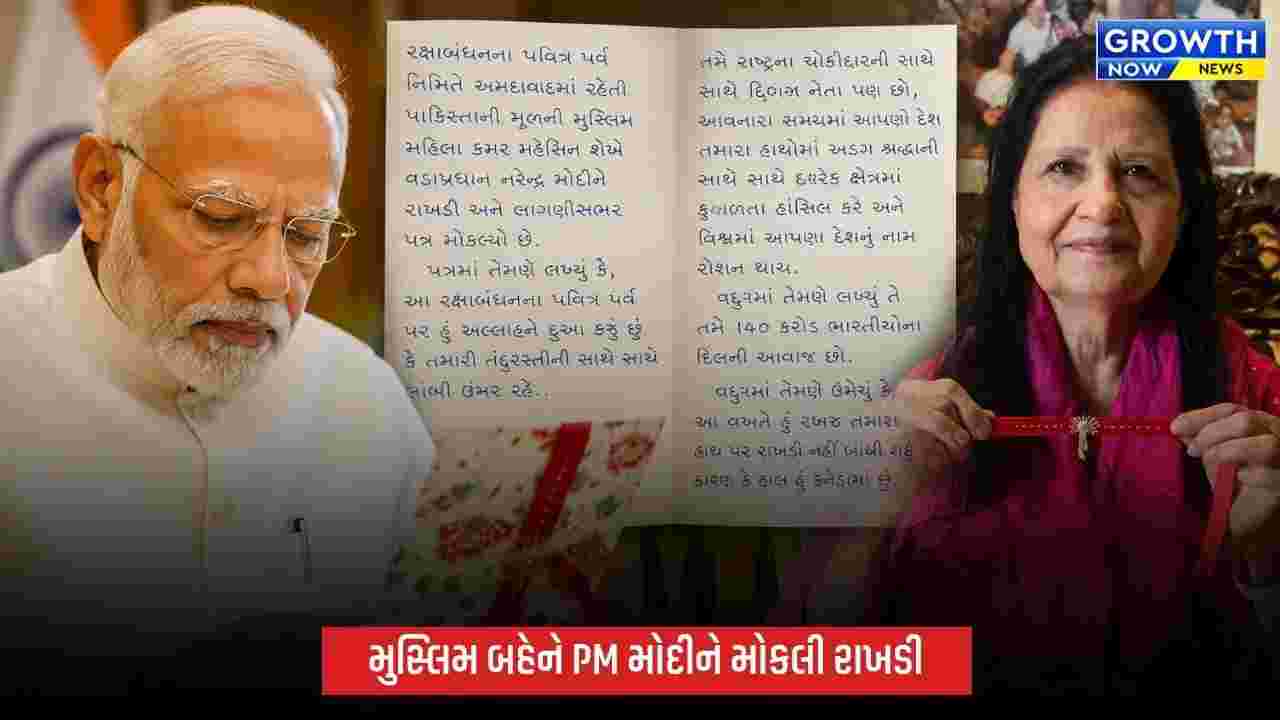 GROWTH
NOW NEWS
રક્ષાબંધનના પવિત્ર પર્વ
નિમિતે અમદાવાદમાં રહેતી
પાકિસ્તાની મૂળની મુસ્લિમ
મહિલા કમર મહેસિન શેખે
વડાપ્રધાન નરેન્દ્ર મોદીને
રાખડી અને લાગણીસભર
પત્ર મોકલ્યો છે.
પત્રમાં તેમણે લખ્યું કે,
આ રક્ષાબંધનના પવિત્ર પર્વ
પર હું અલ્લાહને દુઆ કરું છું
કે તમારી તંદુરસ્તીની સાથે સાથે
લાંબી ઉંમર રહે..
તમે રાષ્ટ્રના ચોકીદારની સાથે
સાથે દિગ્ગજ નેતા પણ છો,
આવનારા સમયમાં આપણો દેશ
તમારા હાથોમાં અડગ શ્રદ્ધાની
સાથે સાથે દરેક ક્ષેત્રમાં
કુશળતા હાંસિલ કરે અને
વિશ્વમાં આપણા દેશનું નામ
રોશન થાય.
વધુમાં તેમણે લખ્યું તે
તમે 140 કરોડ ભારતીયોના
દિલની આવાજ છો.
વધુમાં તેમણે ઉમેર્યું કે,
આ વખતે હું તમારા
હાથ પર રાખડી નહીં બાંધી શકું
કારણ કે હાલ હું કેનેડામાં છું.
મુસ્લિમ બહેને PM મોદીને મોકલી રાખડી